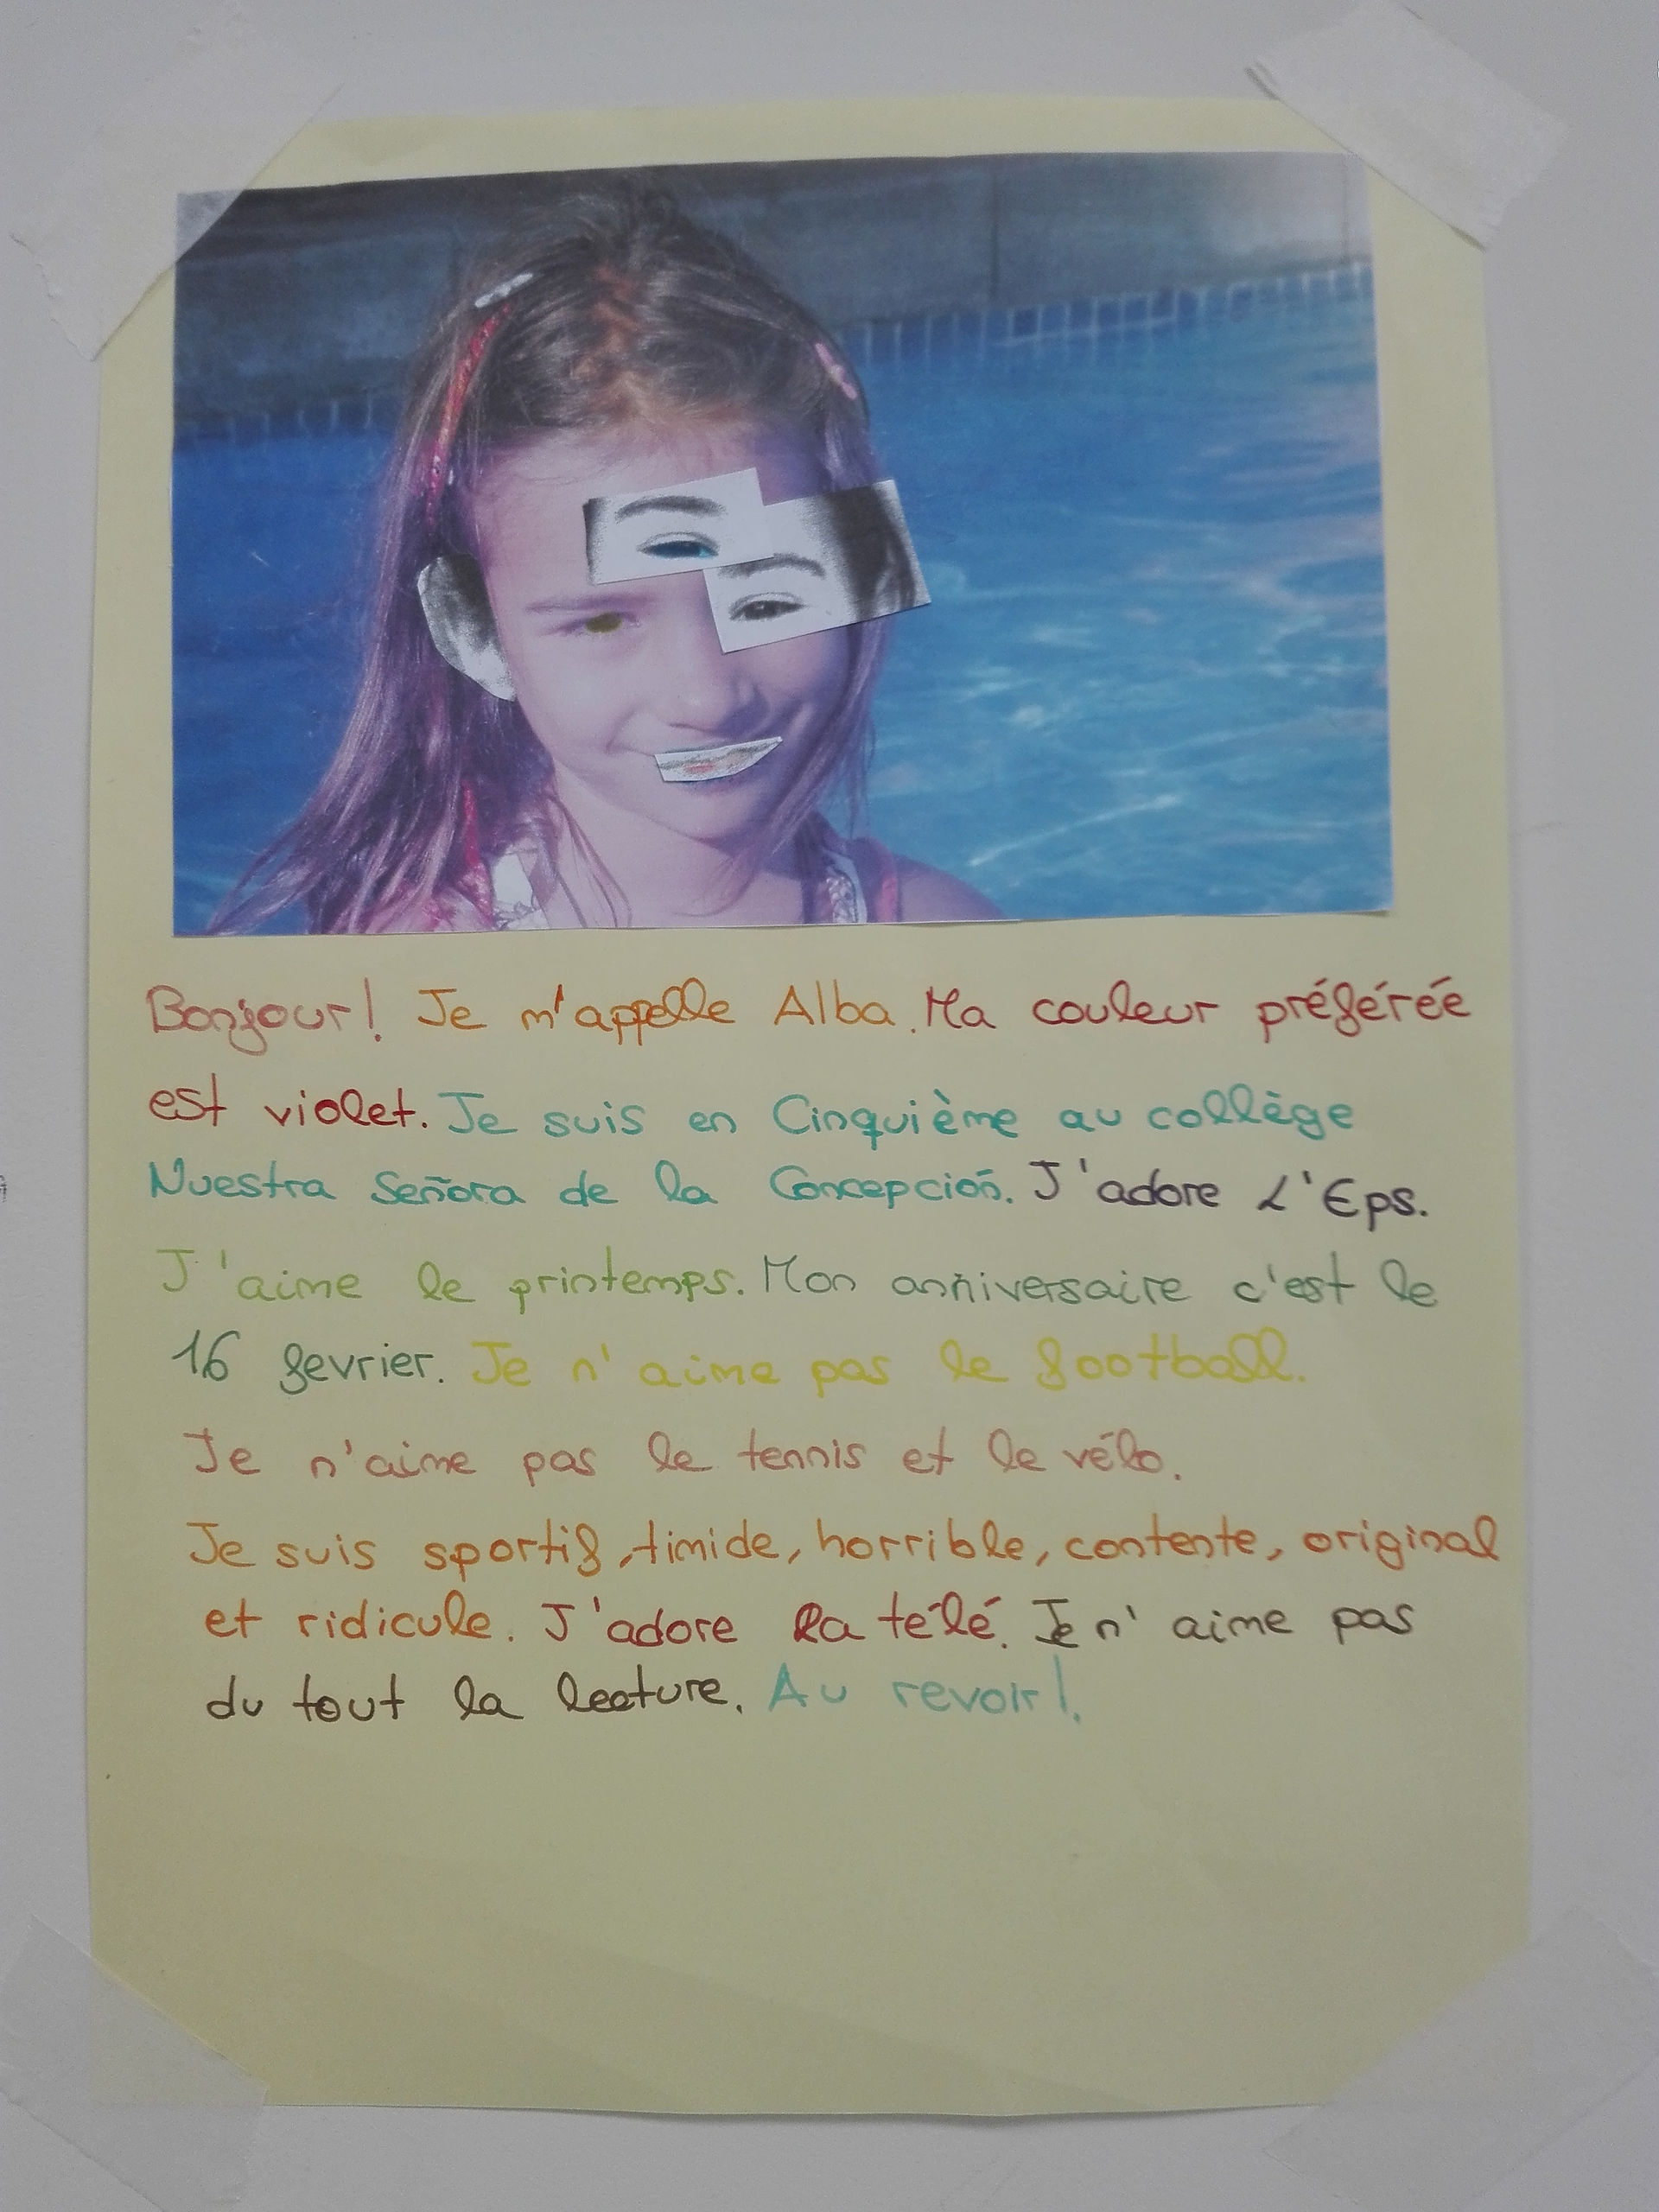 Bonjour! Je m'appelle Alba. Ma couleur préférée
est violet. Je suis en Cinquième au collège
Nuestra Señora de la Concepción. J'adore L'Eps.
J'aime le printemps. Mon anniversaire c'est le
16 fevrier. Je n'aime pas le football.
Je n'aime pas le tennis et le vélo.
Je suis sportif, timide, horrible, contente, original
et ridicule. J'adore la télé. Je n'aime pas
du tout la lecture. Au revoir!.